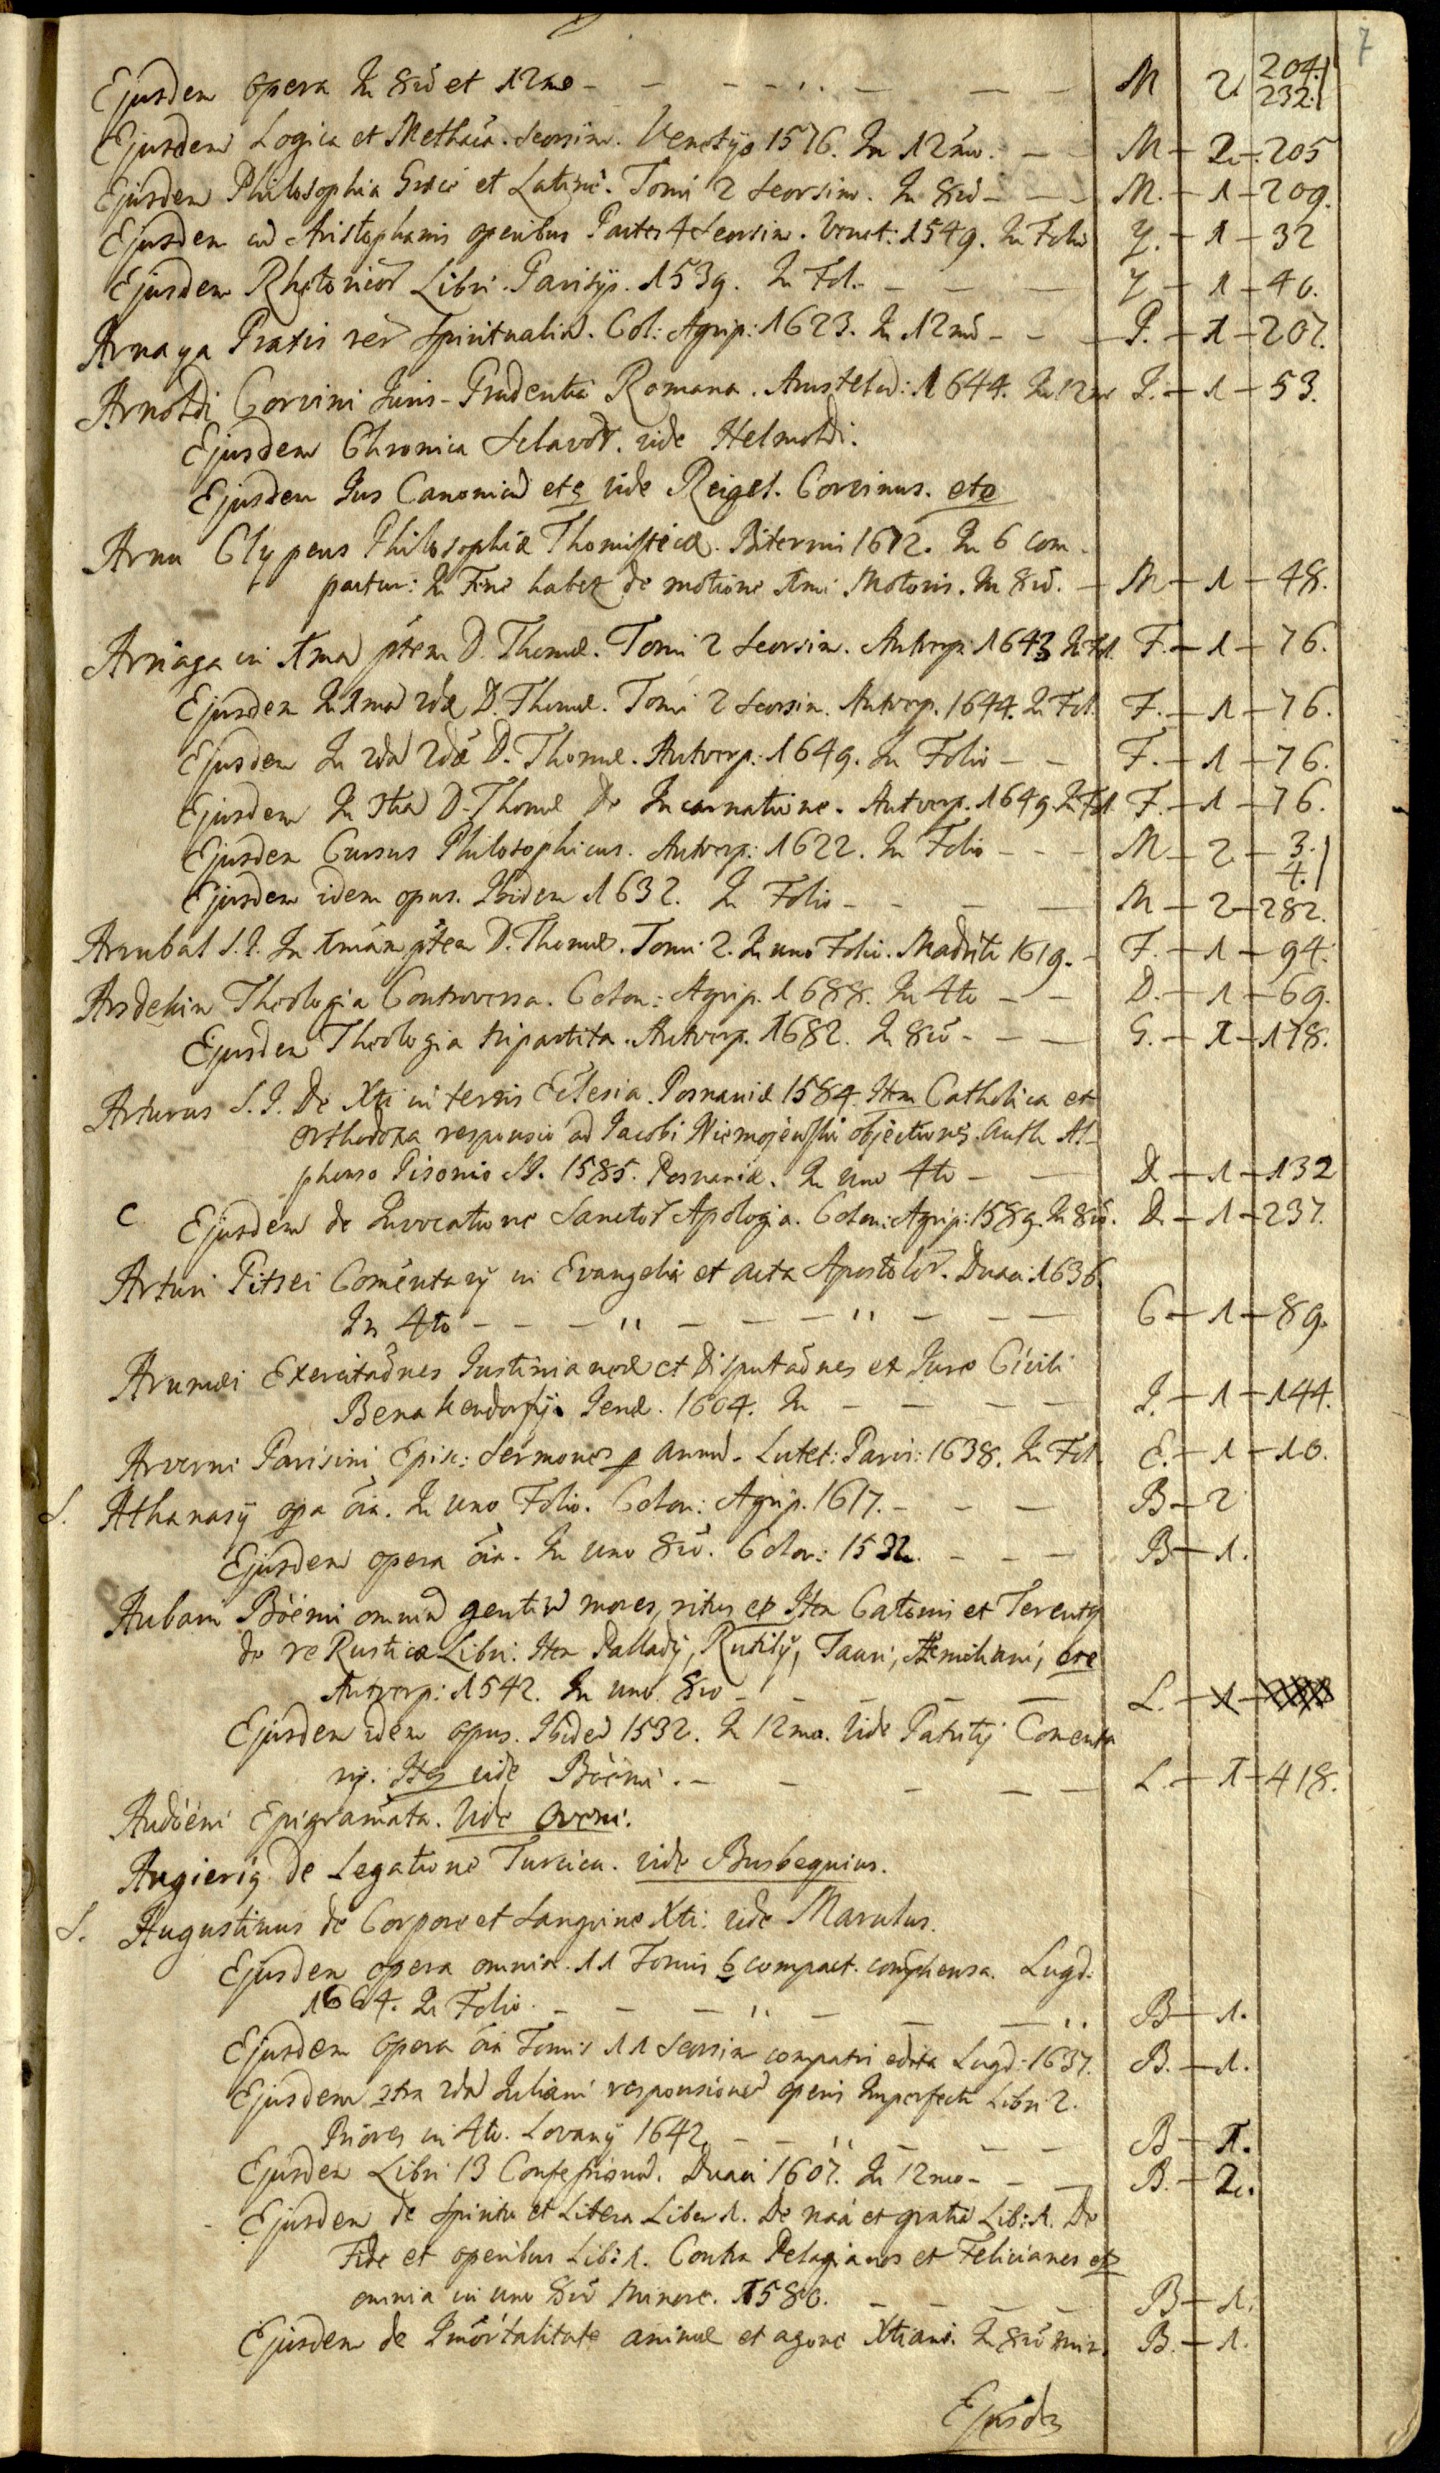 7
Ejusdem opera In 8vo et 12mo - - - - - - M 2. 204. 232.
Ejusdem Logica et Methaca. seorsim. Venetijs 1576. In 12mo. - - M - 2 - 205
Ejusdem Philosophia Graece et Latine. Tomi 2 seorsim. In 8vo - - - M. - 1 - 209.
Ejusdem cu Aristophanis operibus Partes 4 seorsim. Venet: 1549. In Folio Z. - 1 - 32
Ejusdem Rhetoricor Libri. Parisijs. 1539. In Fol. - - - - Z - 1 - 40.
Arnaya Praxis rer spiritualiu. Col: Agrip: 1623. In 12mo - - - P. - 1 - 207.
Arnoldi Corvini Juris-Prudentia Romana. Amstelod: 1644. In 12mo J. - 1 - 53.
Ejusdem Chronica Sclavor. vide Helmoldi.
Ejusdem Jus Canonicu etc vide Corvinus. etc
Arnu Clypeus Philosophiae Thomisticae. Biterris 1672. In 6 com-
partur: In Fine habet de motione 1mi Motoris. In 8vo. - M - 1 - 48.
Arriaga in 1ma ptem D. Thomae. Tomi 2 seorsim. Antverp: 1643 In Fol. F. - 1 - 76.
Ejusdem In 1ma 2dae D. Thomae. Tomi 2 seorsim. Antverp. 1644. In Fol. F. - 1 - 76.
Ejusdem In 2da 2dae D. Thomae. Antverp: 1649. In Folio - - F. - 1 - 76.
Ejusdem In 3tia D. Thomae De Incarnatione. Antverp. 1649 In Fol. F. - 1 - 76.
Ejusdem Cursus Philosophicus. Antverp: 1622. In Folio - - - M - 2 - 3. 4.
Ejusdem idem opus. Ibidem 1632. In Folio - - - - M - 2 - 282.
Arrubal S.J. In 1mam ptem D. Thomae. Tomi 2. In uno Folio. Madriti 1619. - F. - 1 - 94.
Arsdekin Theologia Controversa. Colon: Agrip. 1688. In 4to - - D. - 1 - 69.
Ejusdem Theologia tripartita. Antverp. 1682. In 8vo - - - G. - 1 - 178.
Arturus S.J. De Xti in terris Eclesia. Posnaniae 1584. Item Catholica et
orthodoxa responsio ad Jacobi Niemojewski objectiones. Auth. Al-
phonso Pisonio SJ. 1585. Posnaniae. In uno 4to - - D - 1 - 132
C Ejusdem de Invocatione Sanctor Apologia. Colon: Agrip: 1589. In 8vo. D - 1 - 237.
Arturi Pitsei Comentarij in Evangelia et acta Apostolor. Duaci 1636.
In 4to - - - " - - - " - - - C - 1 - 89.
Arumaei Exercitaones Justinianeae et Disputaones et Jure Civili
Benakendorffij. Jenae. 1604. In - - - - J. - 1 - 144.
Arverni Parisini Episc: Sermones p annu. Lutet: Paris: 1638. In Fol. E. - 1 - 10.
S. Athanasij opa oia. In uno Folio. Colon: Agrip. 1617. - - - B - 2
Ejusdem opera oia. In uno 8vo. Colon: 1532. - - - B - 1.
Aubani Böemi omniu gentiu mores, ritus et Item Catonis et Terentij
de re Rustica Libri. Item Palladij, Rutilij, Tauri, Aemiliani, etc
Antverp: 1542. In uno 8vo - - - - - L. - 1 -
Ejusdem idem opus. Ibidem 1532. In 12mo. Vide Patritij Comenta
rij. Item vide Böemi. - - - - - L. - 1 - 418.
Audöeni Epigramata. Vide Oveni.
Augierij de Legatione Turcica. vide Busbequius.
S. Augustinus de Corpore et Sanguine Xti: vide Marulus.
Ejusdem opera omnia. 11 Tomis 6 compact. comphensa. Lugd:
1664. In Folio. - - - " - - - " B - 1.
Ejusdem opera oia Tomis 11 seorsim compatis edita Lugd: 1637. B. - 1.
Ejusdem 3tra 2da Juliani responsionem operis Imperfecti Libri 2.
Priores in 4to. Lovanij 1642. - - " - - - B - 1.
Ejusdem Libri 13 Confessionu. Duaci 1607. In 12mo - - - B. - 2.
Ejusdem de Spiritu et Litera Liber 1. De naa et gratia Lib: 1. De
Fide et operibus Lib: 1. Contra Pelagianos et Felicianos et
omnia in uno 8vo minore. 1580. - - - - B - 1.
Ejusdem de Imortalitate animae et agone Xtiano. In 8vo min. B. - 1.
Ejusdem